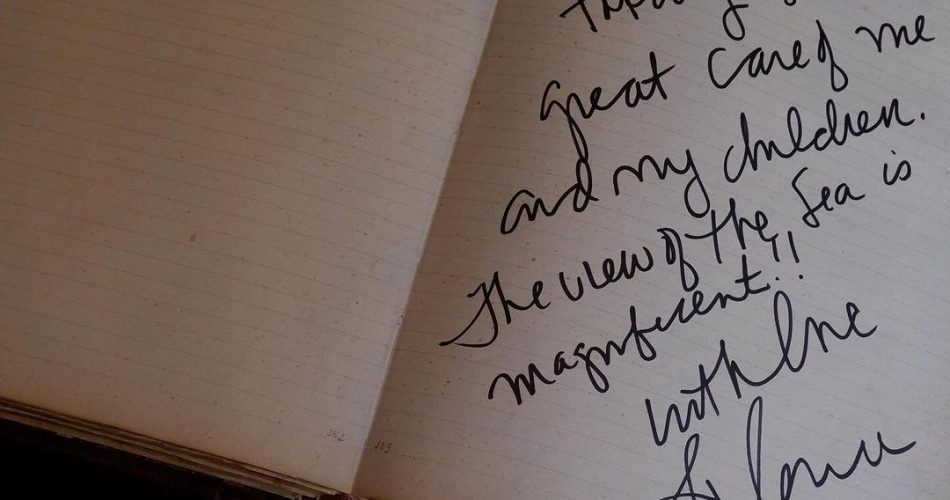 great care of me
and my children.
The view of the Sea is
magnificent!!
with love
182 183